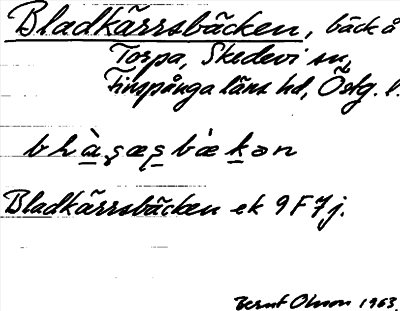 Bladkärrsbäcken, bäck å
Torpa, Skedevi sn,
Finspånga läns hd, Östg. l.
Bladkärrsbäcken ek 9F7j.
Bernt Olsson 1963.